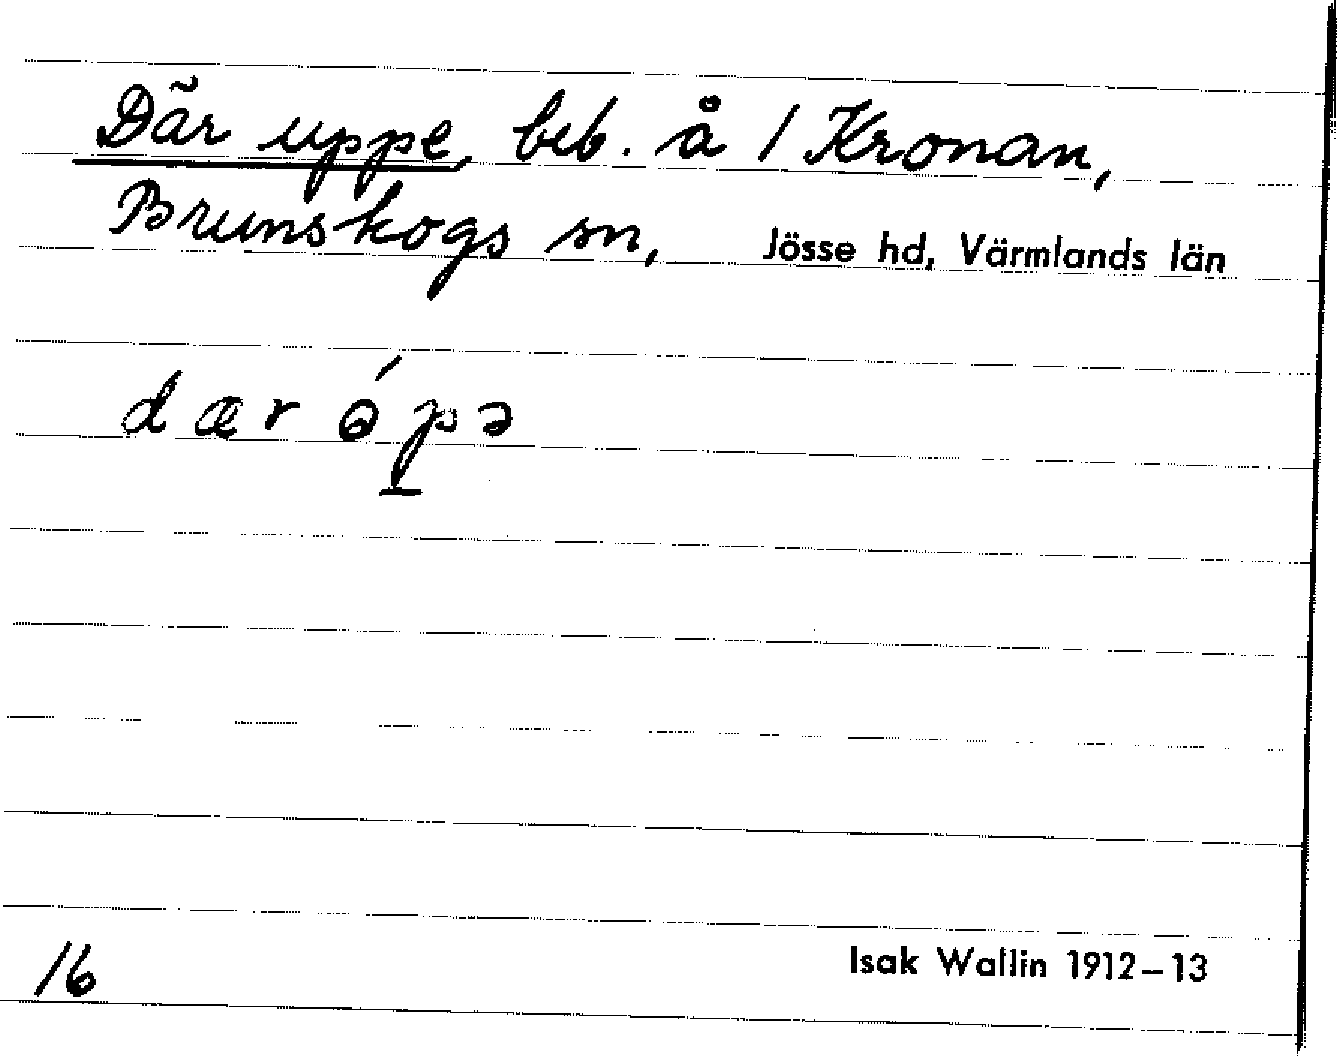 Där uppe, beb. å 1 Kronan,
Brunskogs sn, Jösse hd, Värmlands län
dær ópə
16
Isak Wallin 1912–13